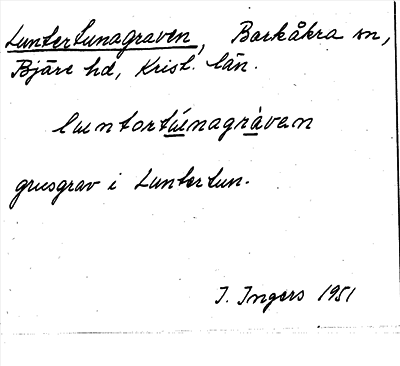 Luntertunagraven, Barkåkra sn,
Bjäre hd, Krist. län.
luntortúnagràven
grusgrav i Luntertun.
I. Ingers 1951